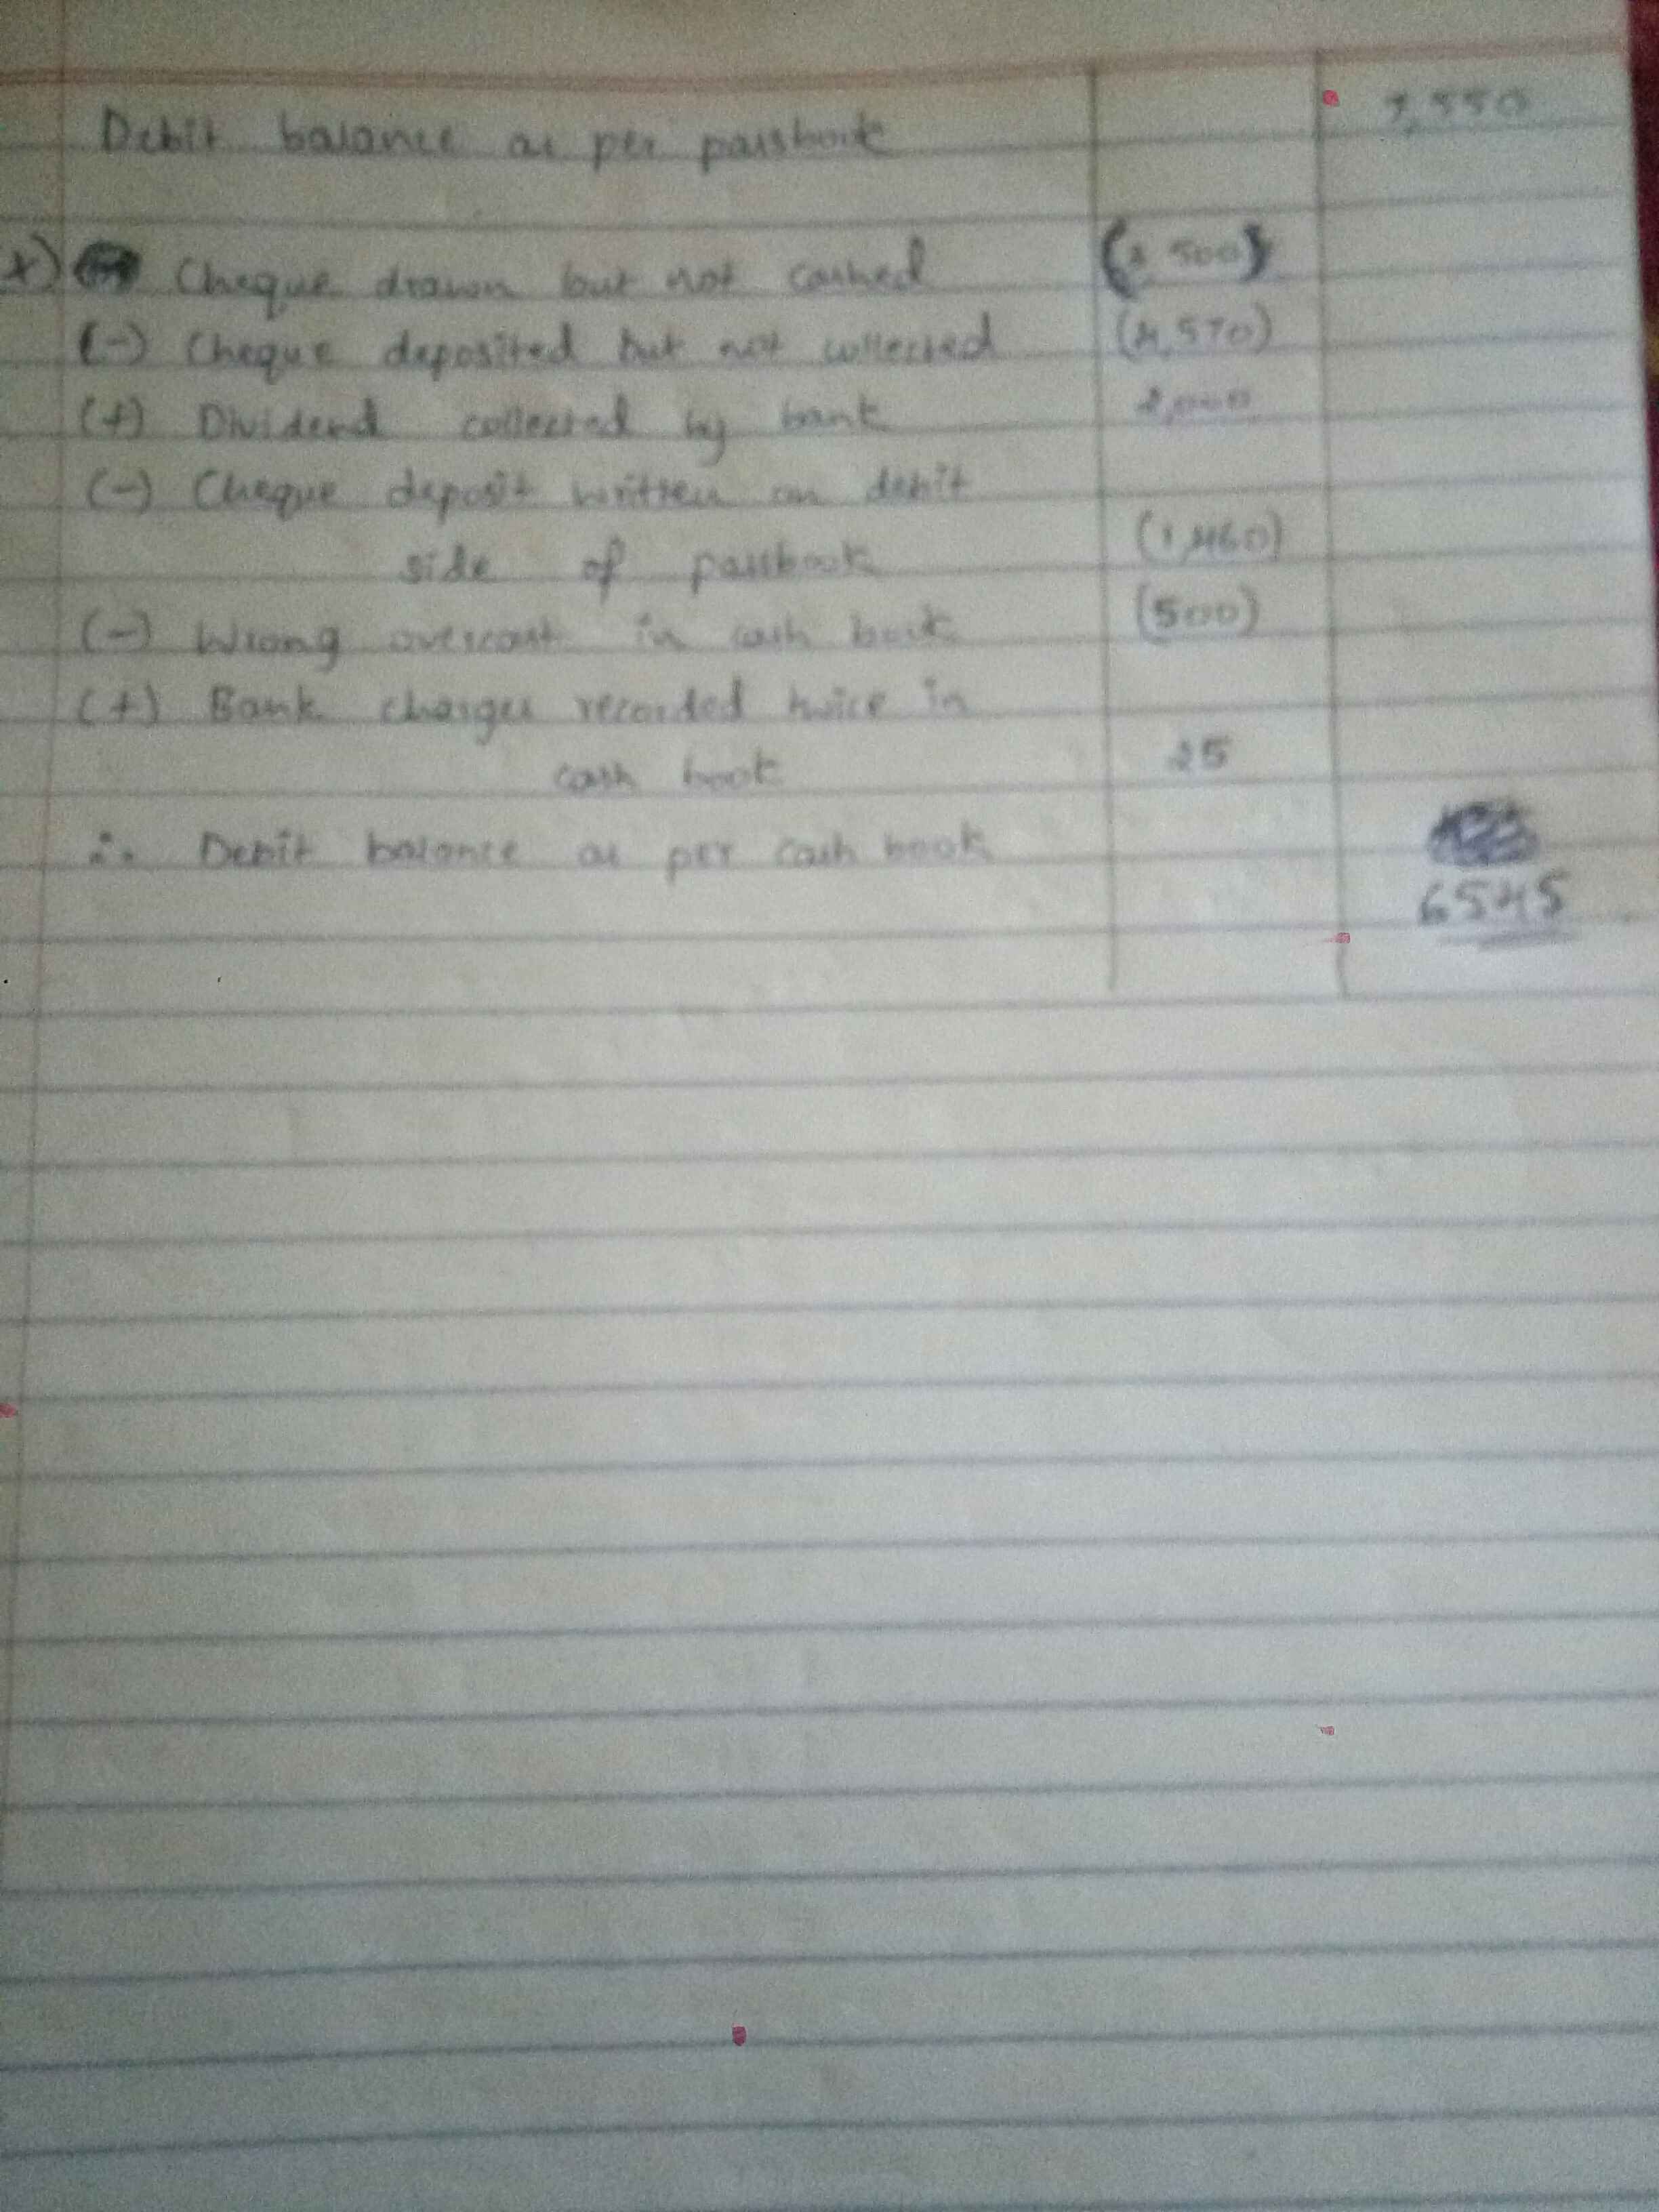 Debit balance as per passbook 7,550
+) Cheque drawn but not cashed 500)
(-) Cheque deposited but not collected (4,570)
(+) Dividend collected by bank 2,000
(-) Cheque deposit written on debit
side of passbook (1,460)
(-) Wrong overcast in cash book (500)
(+) Bank charges recorded twice in
cash book 25
∴ Debit balance as per cash book
6545